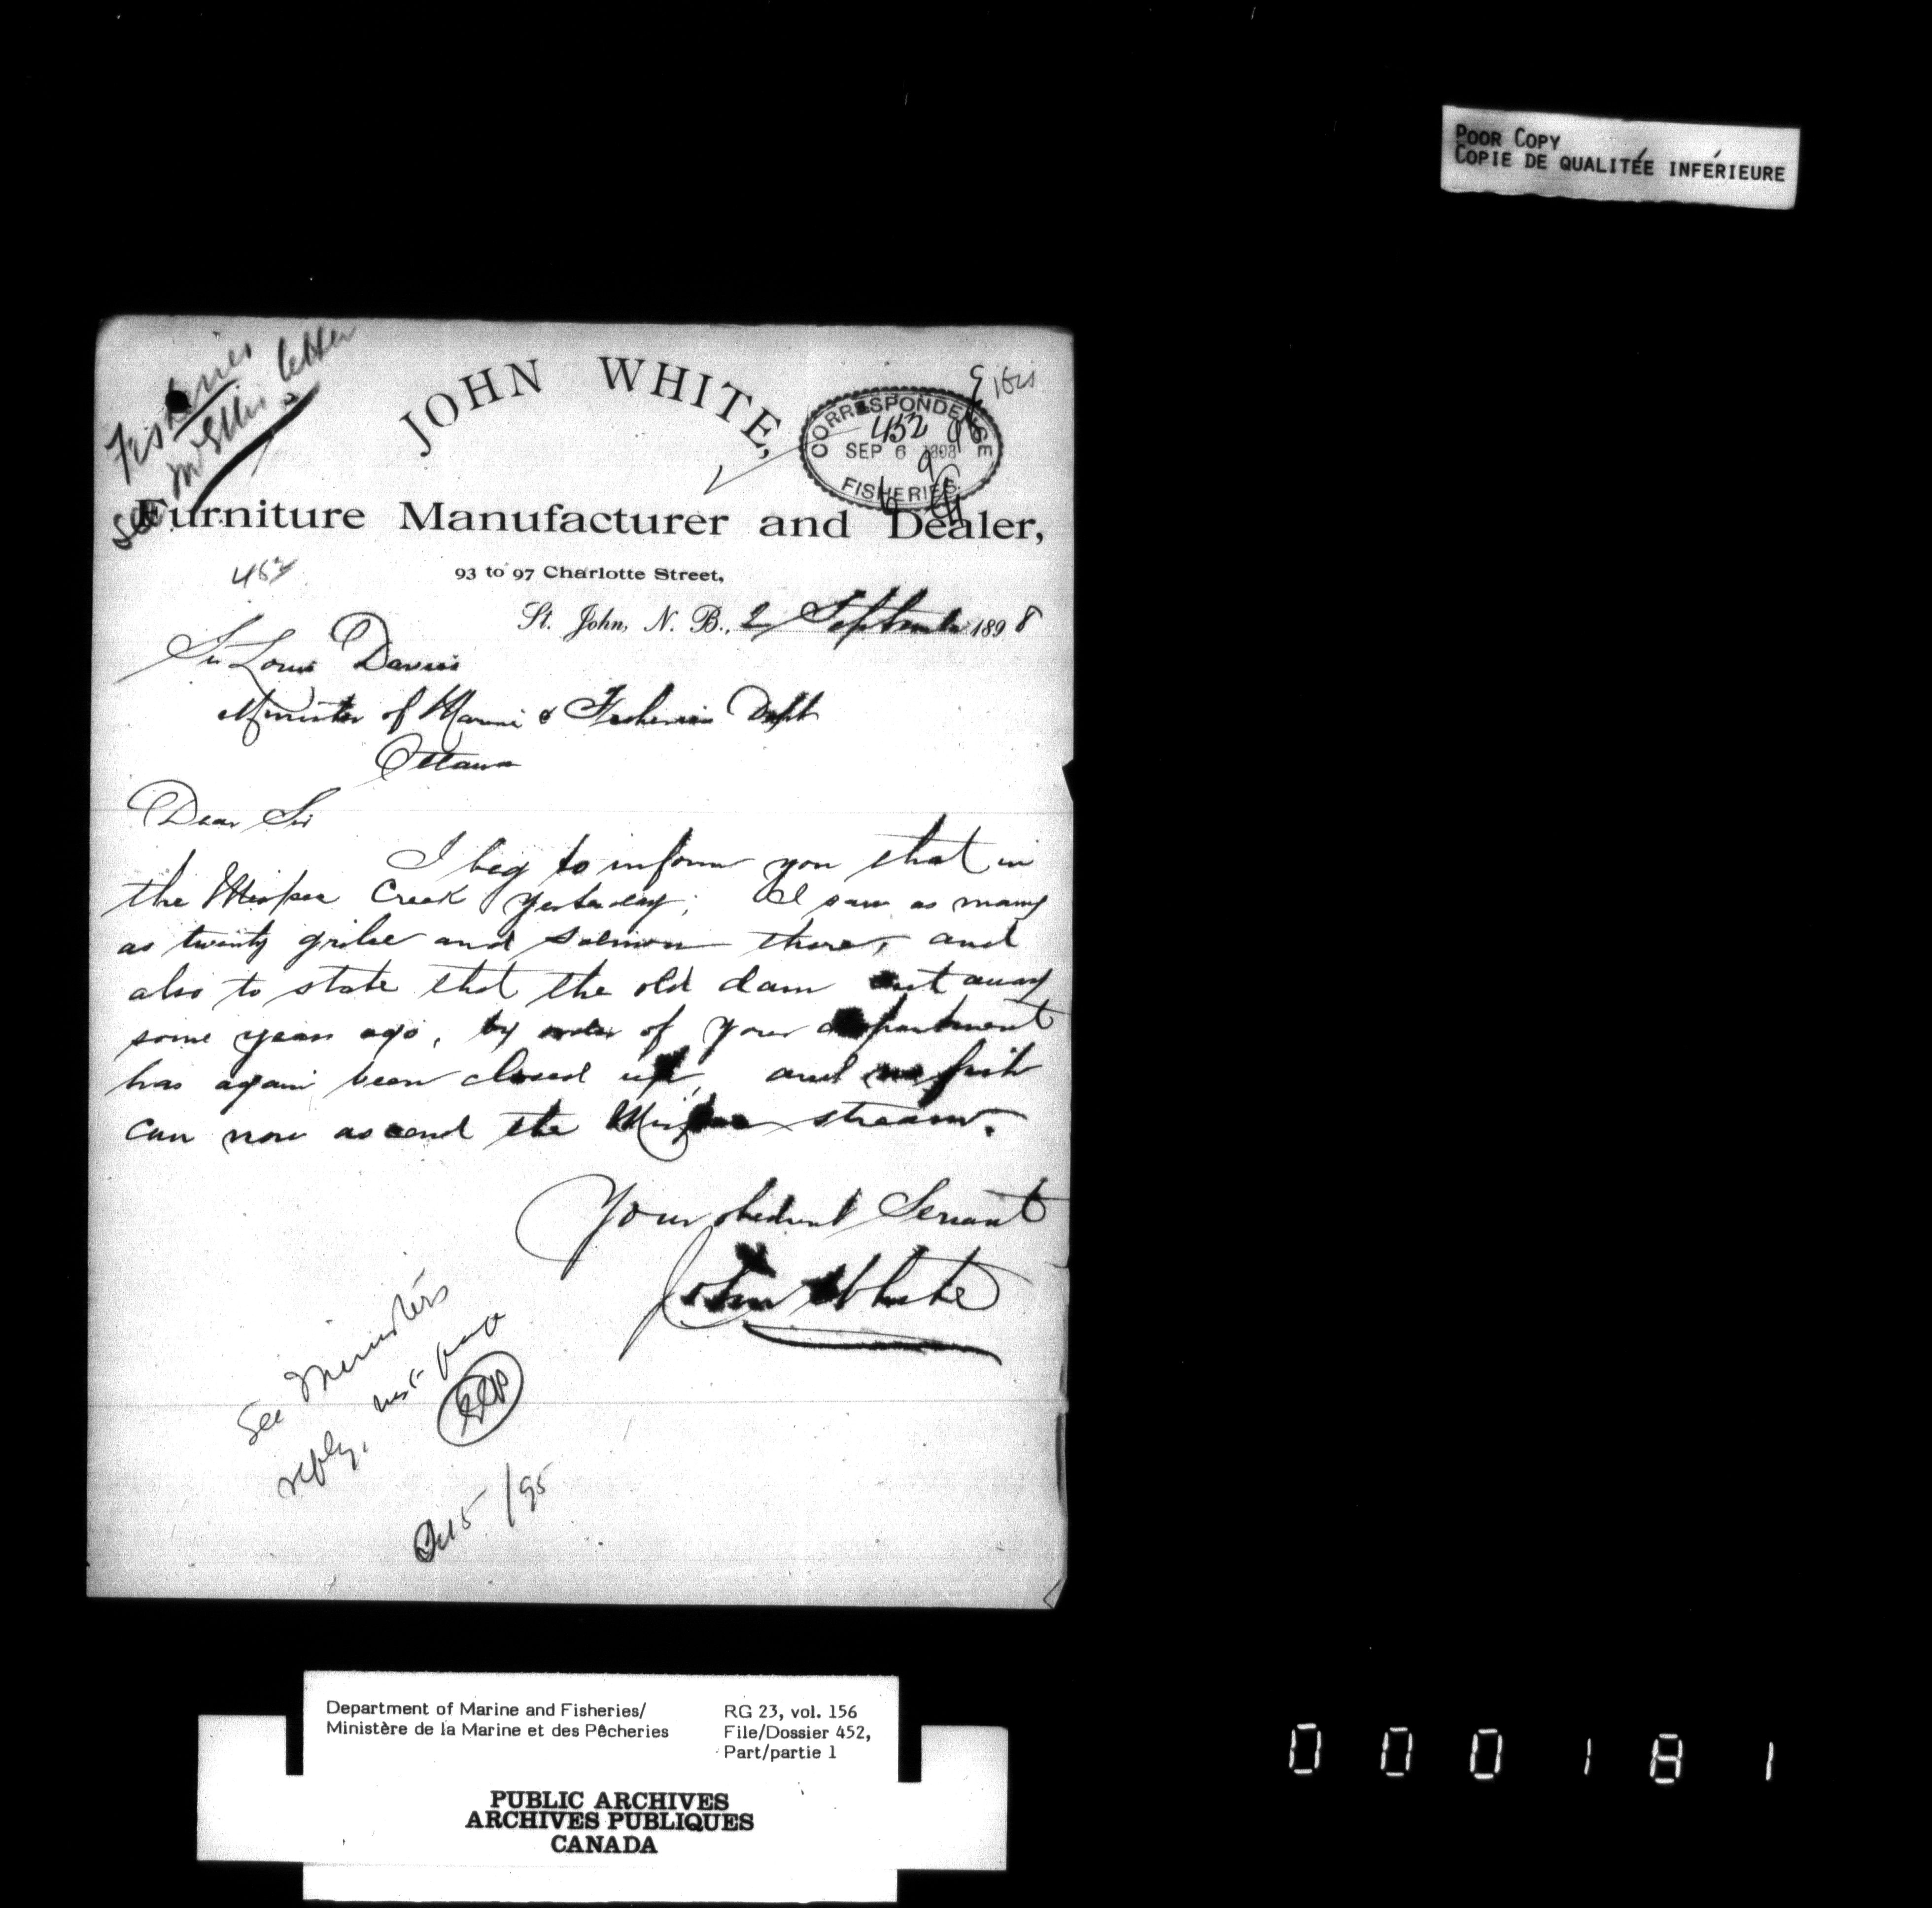 POOR COPY
COPIE DE QUALITÉE INFÉRIEURE
Fisheries
See Mr Ellis letter
JOHN WHITE,
CORRESPONDENCE
452
SEP 6 1898
FISHERIES
Furniture Manufacturer and Dealer,
452
93 to 97 Charlotte Street,
St. John, N. B., 2 September 1898
Sir Louis Davies
Minister of Marine & Fisheries Dept
Ottawa
Dear Sir
I beg to inform you that in
the Mispec Creek yesterday; I saw as many
as twenty grilse and salmon there, and
also to state that the old dam cut away
some years ago, by order of your department
has again been closed up, and no fish
can now ascend the Mispec stream.
Your obedient Servant
John White
See Minister's
reply, next page
Department of Marine and Fisheries/
Ministère de la Marine et des Pêcheries
RG 23, vol. 156
File/Dossier 452,
Part/partie 1
PUBLIC ARCHIVES
ARCHIVES PUBLIQUES
CANADA
000181